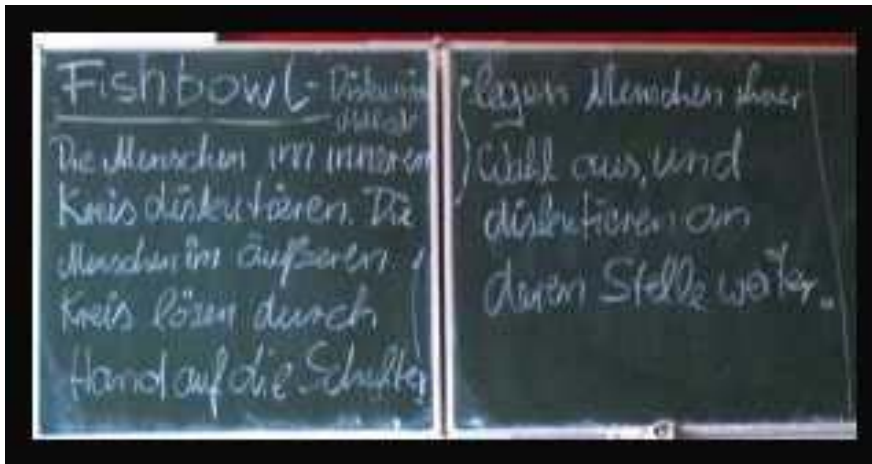 Fishbowl-
Die Menschen im inneren
Kreis diskutieren. Die
Menschen im äußeren
Kreis lösen durch
Hand auf die Schulter
legen Menschen ihrer
Wahl aus, und
diskutieren an
deren Stelle weiter.